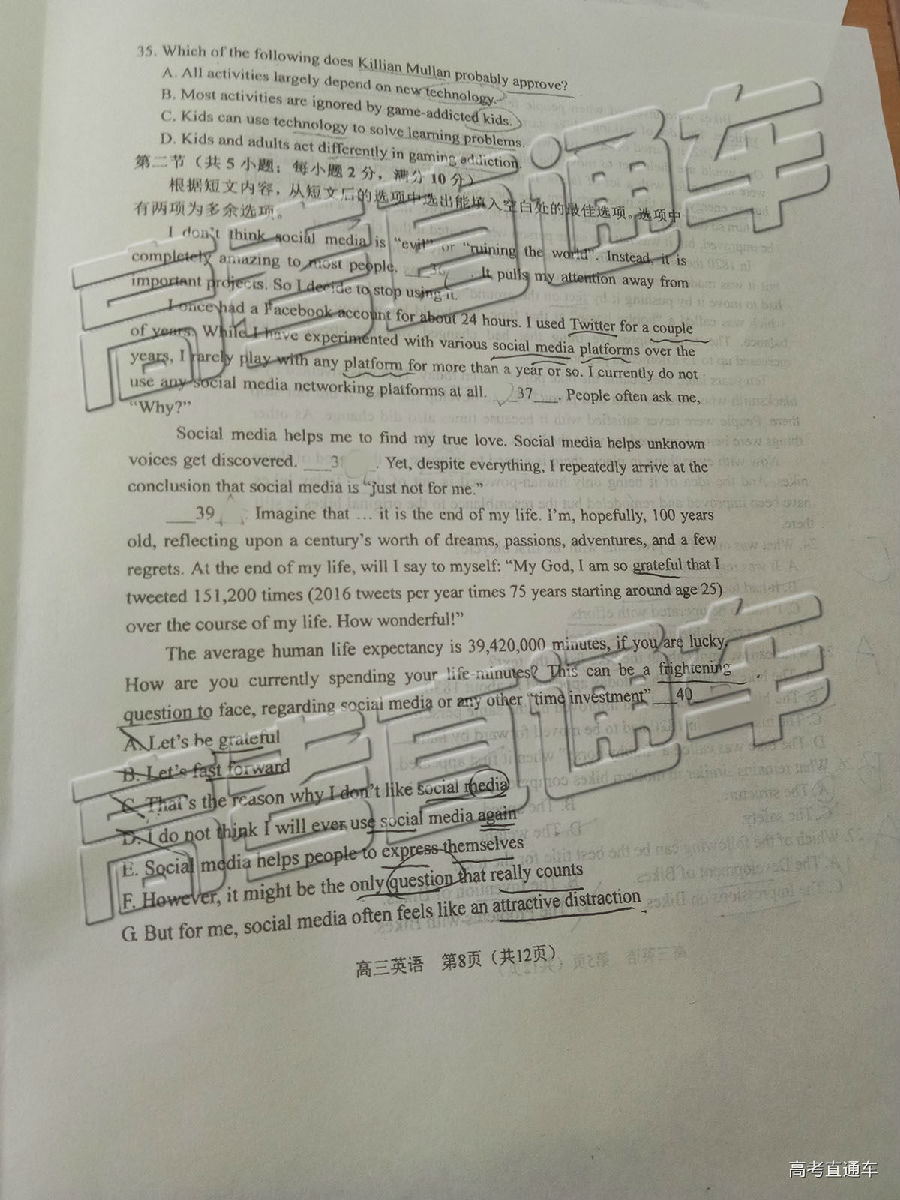 35. Which of the following does Killian Mullan probably approve?
A. All activities largely depend on new technology.
B. Most activities are ignored by game-addicted kids.
C. Kids can use technology to solve learning problems.
D. Kids and adults act differently in gaming addiction.
第二节（共 5 小题；每小题 2 分，满分 10 分）
根据短文内容，从短文后的选项中选出能填入空白处的最佳选项。选项中
有两项为多余选项。
I don't think social media is “evil” or “ruining the world”. Instead, it is
completely amazing to most people. 36 . It pulls my attention away from
important projects. So I decide to stop using it.
I once had a Facebook account for about 24 hours. I used Twitter for a couple
of years. While I have experimented with various social media platforms over the
years, I rarely play with any platform for more than a year or so. I currently do not
use any social media networking platforms at all. 37 . People often ask me,
“Why?”
Social media helps me to find my true love. Social media helps unknown
voices get discovered. 3 . Yet, despite everything, I repeatedly arrive at the
conclusion that social media is “just not for me.”
39 . Imagine that … it is the end of my life. I'm, hopefully, 100 years
old, reflecting upon a century's worth of dreams, passions, adventures, and a few
regrets. At the end of my life, will I say to myself: “My God, I am so grateful that I
tweeted 151,200 times (2016 tweets per year times 75 years starting around age 25)
over the course of my life. How wonderful!”
The average human life expectancy is 39,420,000 minutes, if you are lucky.
How are you currently spending your life-minutes? This can be a frightening
question to face, regarding social media or any other “time investment” 40 .
A. Let's be grateful
B. Let's fast forward
C. That's the reason why I don't like social media
D. I do not think I will ever use social media again
E. Social media helps people to express themselves
F. However, it might be the only question that really counts
G. But for me, social media often feels like an attractive distraction
高三英语 第8页（共12页）
高考直通车
高考直通车
高考直通车